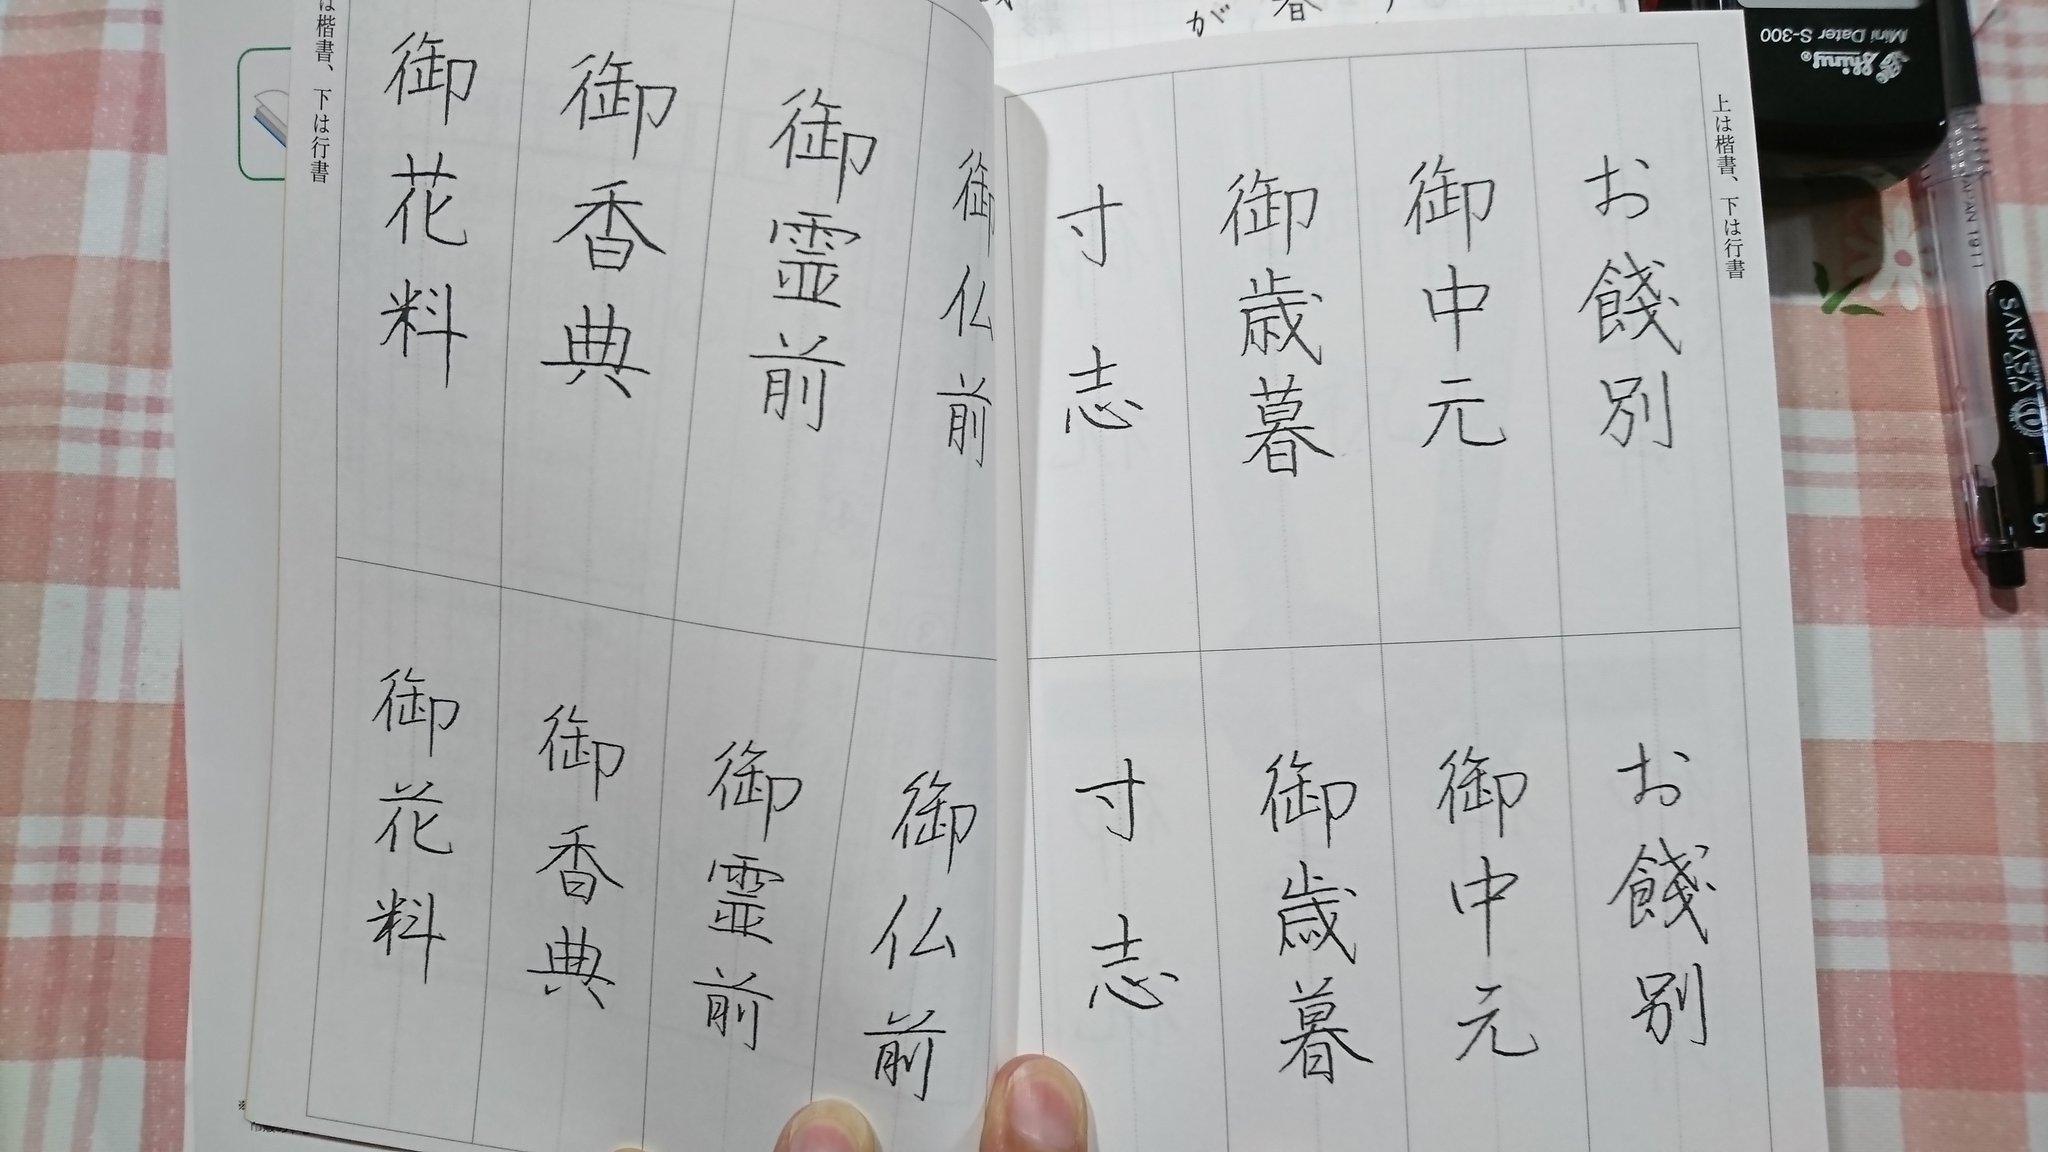 上は楷書、下は行書
お餞別
御中元
御歳暮
寸志
お餞別
御中元
御歳暮
寸志
御仏前
御霊前
御香典
御花料
御仏前
御霊前
御香典
御花料
は楷書、下は行書
が
Shiny
Mini Dater S-300
SARASA
JAPAN 1911